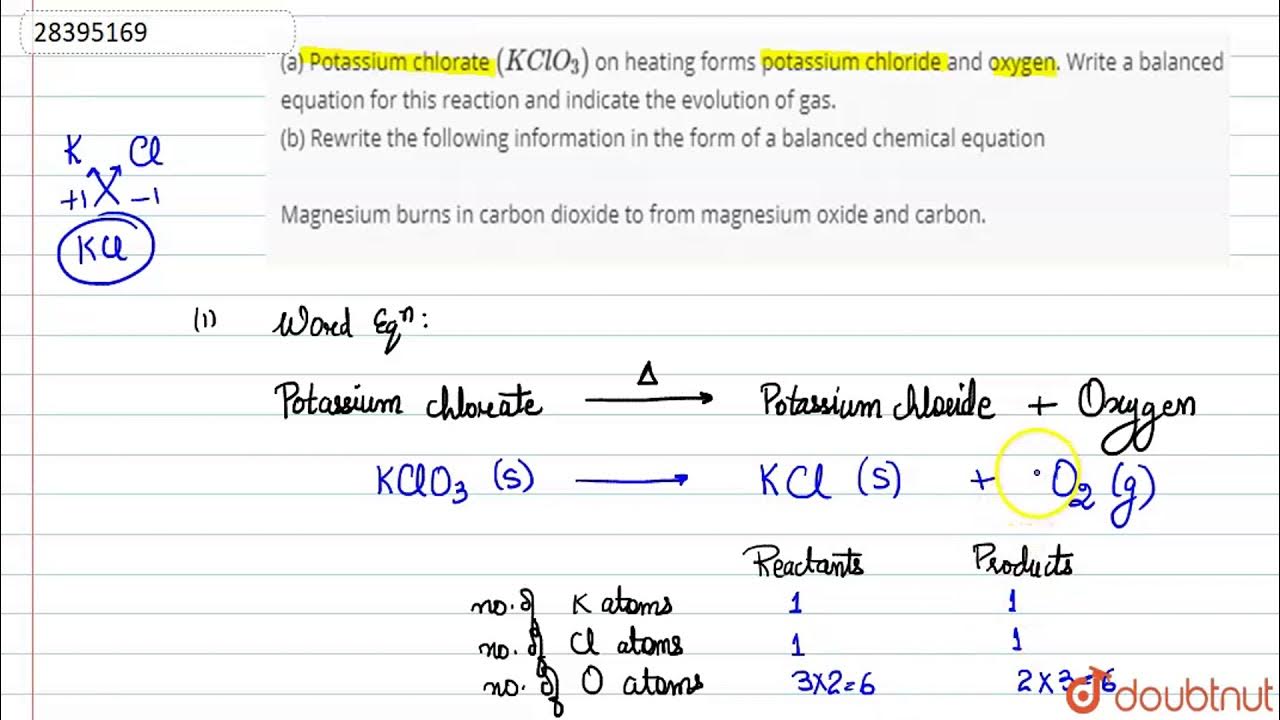 28395169
(a) Potassium chlorate (KClO₃) on heating forms potassium chloride and oxygen. Write a balanced
equation for this reaction and indicate the evolution of gas.
(b) Rewrite the following information in the form of a balanced chemical equation
Magnesium burns in carbon dioxide to from magnesium oxide and carbon.
K Cl
+1 -1
KCl
(1) Word Eqⁿ:
Potassium chlorate Δ→ Potassium chloride + Oxygen
KClO₃ (s) → KCl (s) + O₂ (g)
Reactants Products
no. of K atoms 1 1
no. of Cl atoms 1 1
no. of O atoms 3×2=6 2×3=6
doubtnut